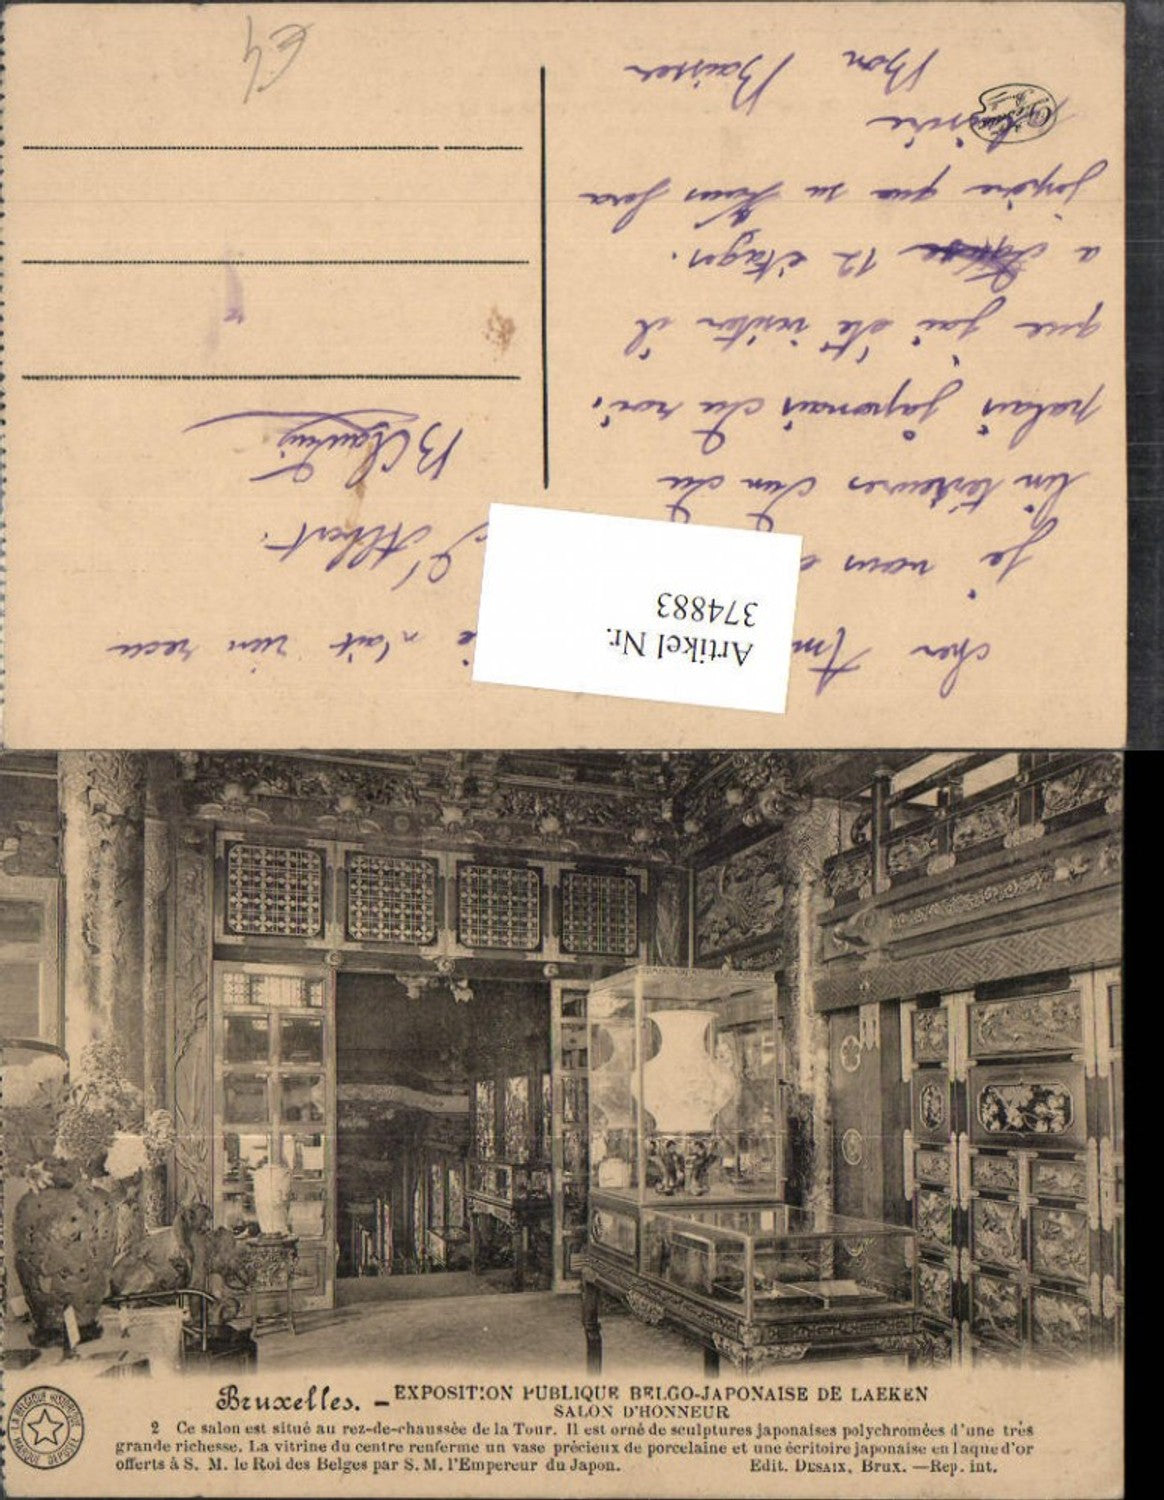 £4
cher Am e n'ait rien recu
je vous
L'intérieures d'un du
palais japonais du roi.
que jai été visiter il
a 12 étages.
j'espère que su Vous fera
Bon Baiser
d'Albert.
B Claudius
Artikel Nr.
374883
Bruxelles. — EXPOSITION PUBLIQUE BELGO-JAPONAISE DE LAEKEN
SALON D'HONNEUR
2 Ce salon est situé au rez-de-chaussée de la Tour. Il est orné de sculptures japonaises polychromées d'une très
grande richesse. La vitrine du centre renferme un vase précieux de porcelaine et une écritoire japonaise en laque d'or
offerts à S. M. le Roi des Belges par S. M. l'Empereur du Japon. Edit. DESAIX, Brux. —Rep. int.
LA BELGIQUE HISTORIQUE
MARQUE DÉPOSÉE